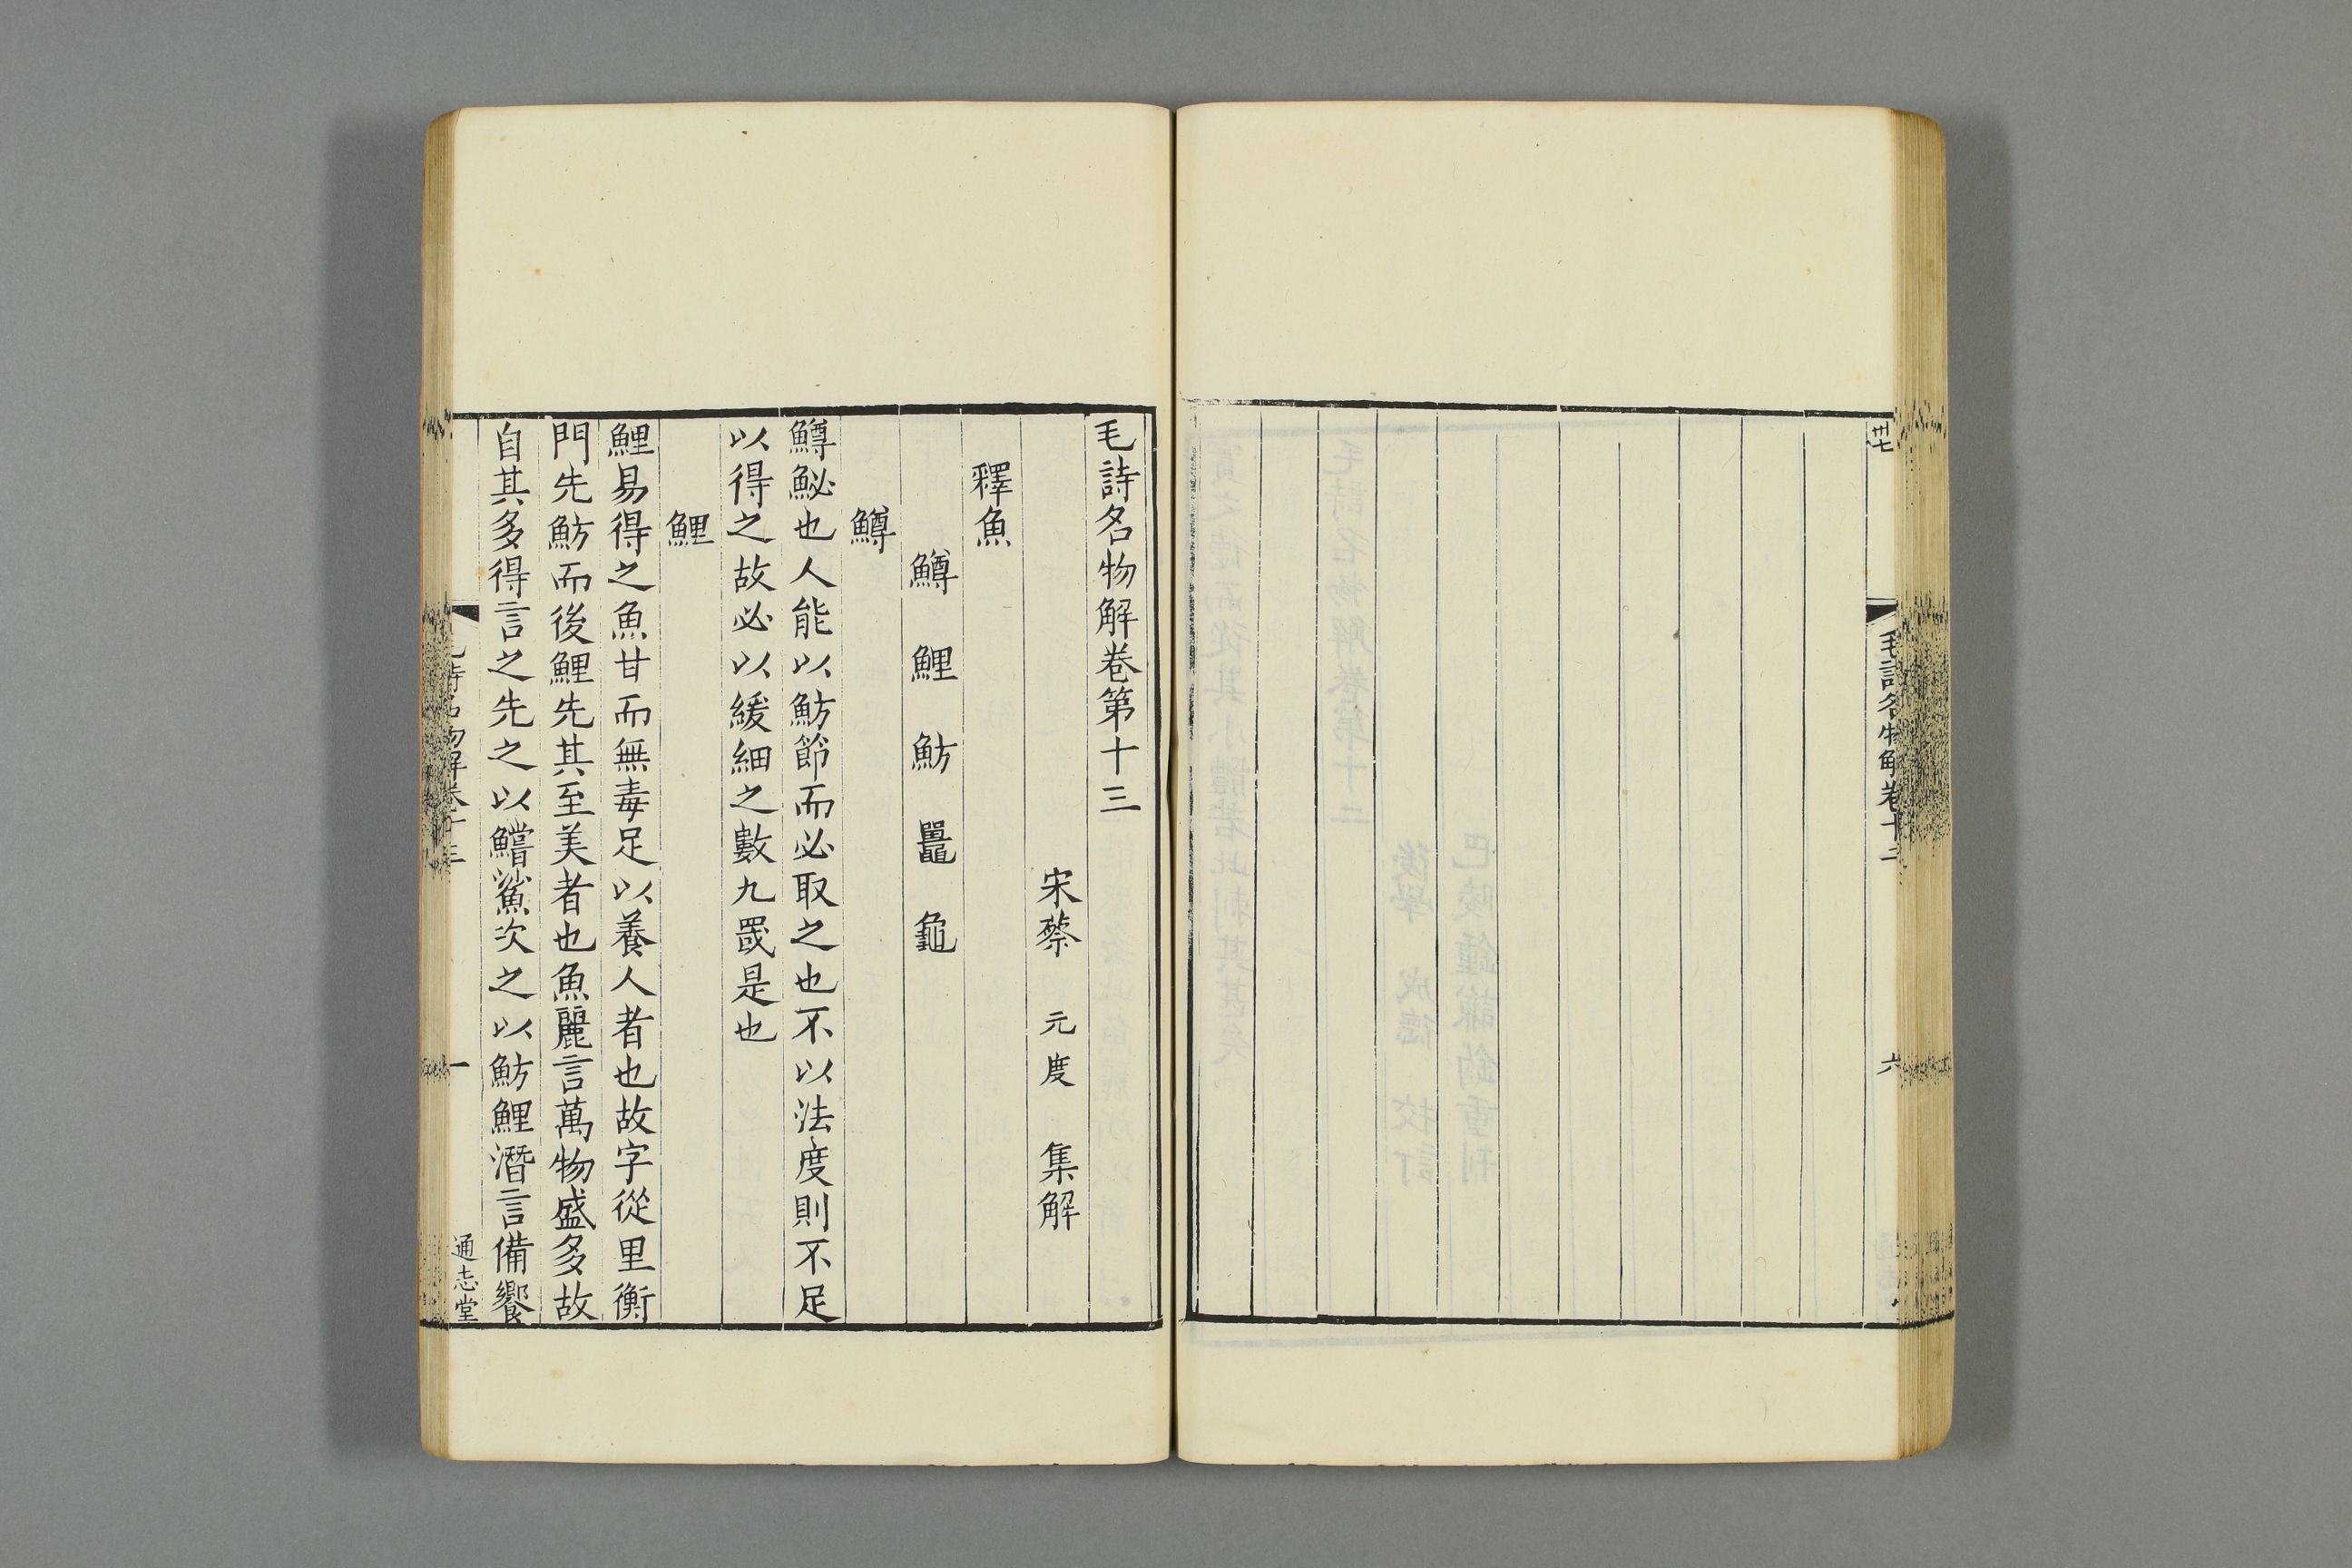 毛詩名物解卷十二
六
毛詩名物解卷第十三
宋蔡元度集解
釋魚
鱒 鯉 魴 鼉 龜
鱒
鱒鮅也人能以魴節而必取之也不以法度則不足
以得之故必以緩細之數九罭是也
鯉
鯉易得之魚甘而無毒足以養人者也故字從里衡
門先魴而後鯉先其至美者也魚麗言萬物盛多故
自其多得言之先之以鱨鯊次之以魴鯉潛言備饗
毛詩名物解卷十三
一
通志堂